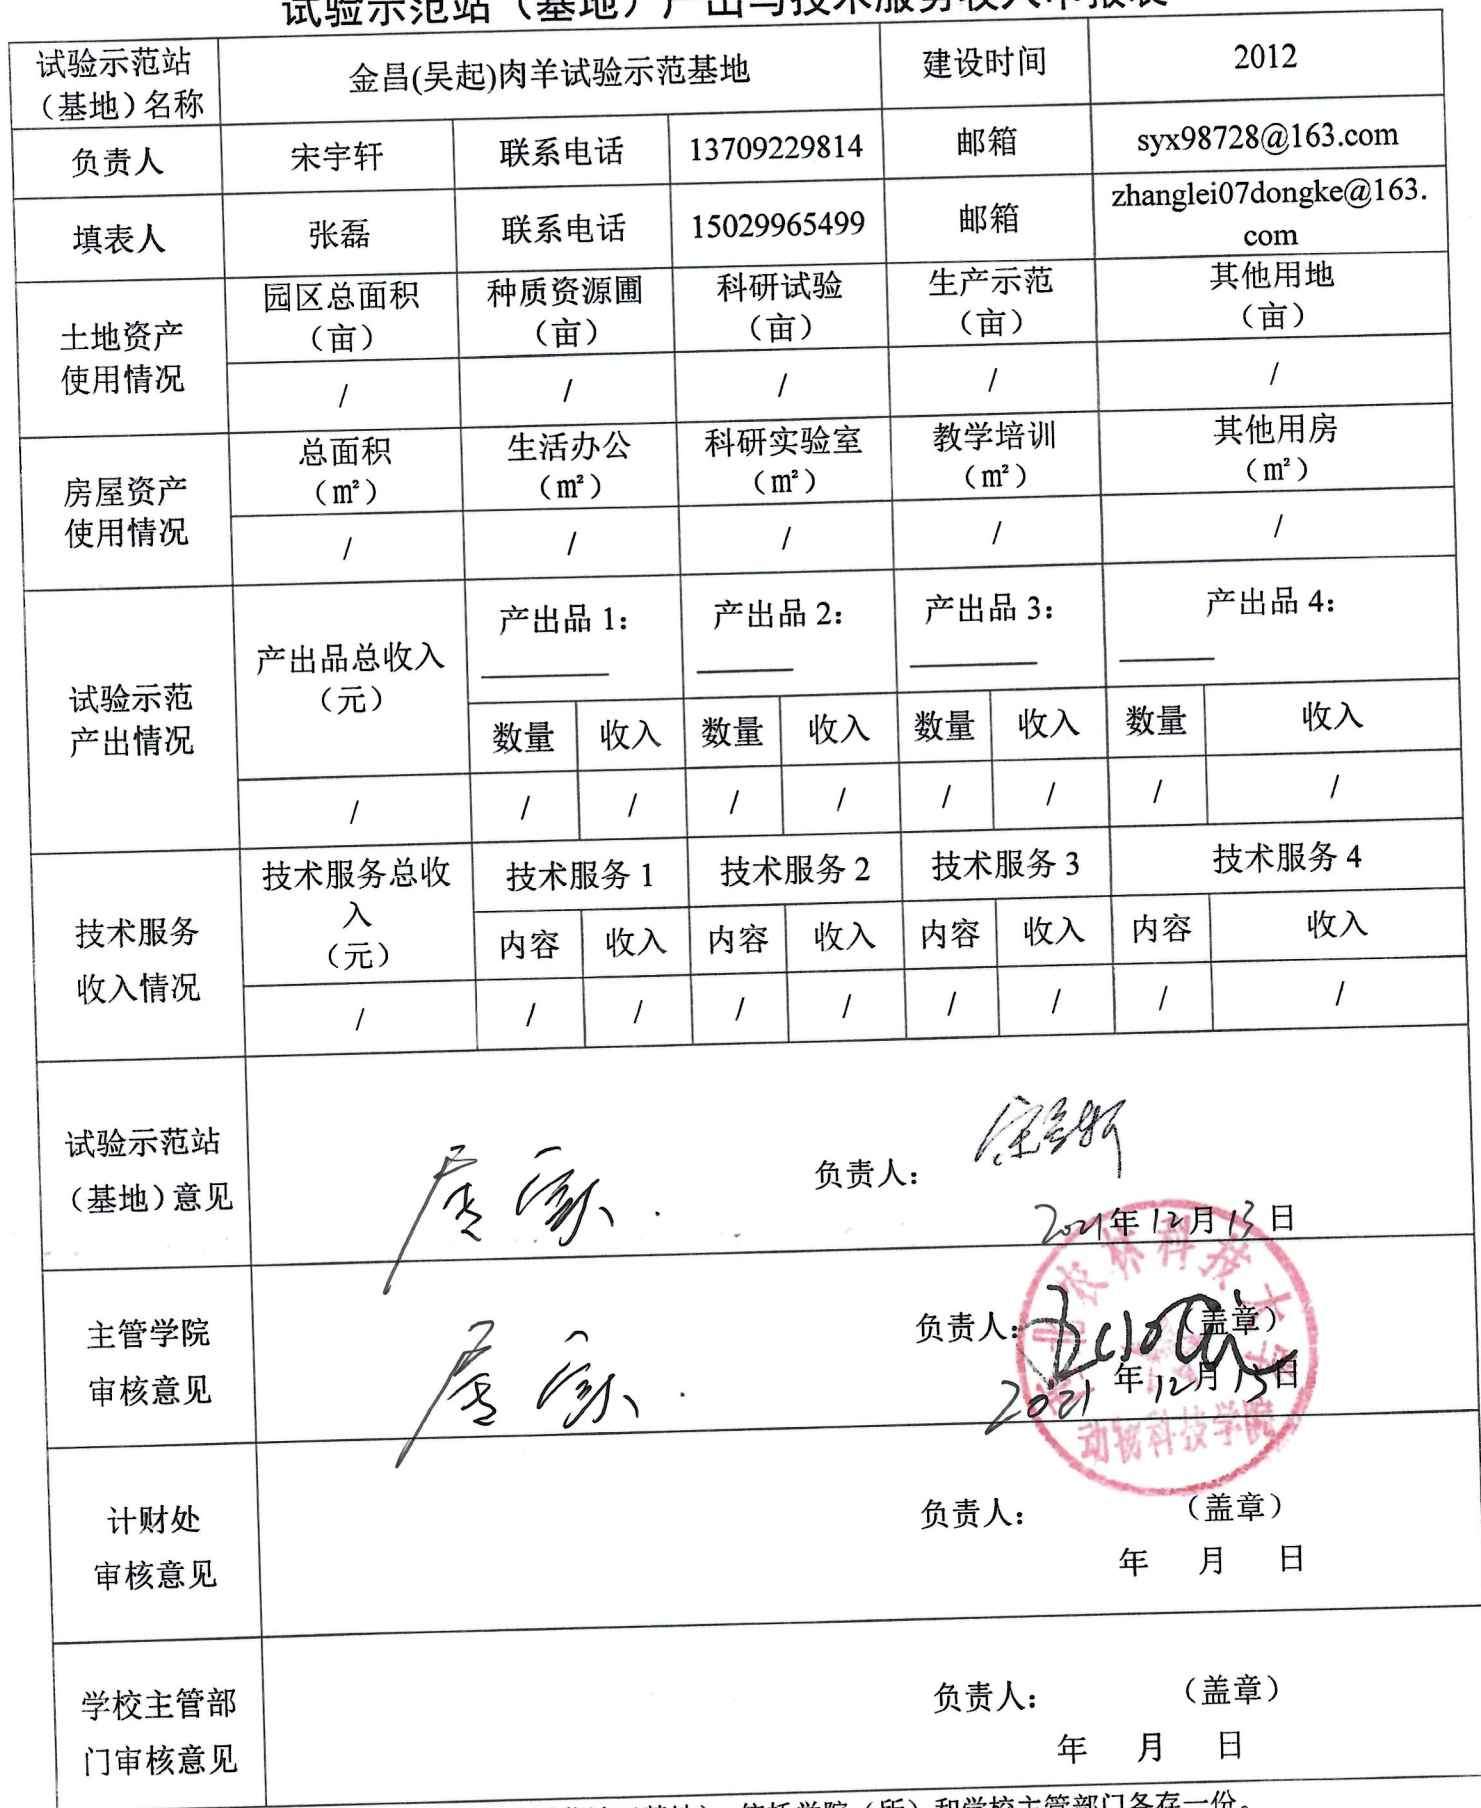 试验示范站（基地）产出与技术服务收入申报表
试验示范站
（基地）名称
金昌(吴起)肉羊试验示范基地
建设时间
2012
负责人
宋宇轩
联系电话
13709229814
邮箱
syx98728@163.com
填表人
张磊
联系电话
15029965499
邮箱
zhanglei07dongke@163.
com
土地资产
使用情况
园区总面积
（亩）
种质资源圃
（亩）
科研试验
（亩）
生产示范
（亩）
其他用地
（亩）
/ / / / /
房屋资产
使用情况
总面积
（㎡）
生活办公
（㎡）
科研实验室
（㎡）
教学培训
（㎡）
其他用房
（㎡）
/ / / / /
试验示范
产出情况
产出品总收入
（元）
产出品 1：
产出品 2：
产出品 3：
产出品 4：
数量 收入 数量 收入 数量 收入 数量 收入
/ / / / / / / / /
技术服务
收入情况
技术服务总收
入
（元）
技术服务 1
技术服务 2
技术服务 3
技术服务 4
内容 收入 内容 收入 内容 收入 内容 收入
/ / / / / / / / /
试验示范站
（基地）意见
属实.
负责人：
宋宇轩
2021年12月13日
主管学院
审核意见
属实.
负责人：
（盖章）
2021年12月13日
西北农林科技大学
动物科技学院
计财处
审核意见
负责人：
（盖章）
年 月 日
学校主管部
门审核意见
负责人：
（盖章）
年 月 日
依托学院（所）和学校主管部门各存一份。